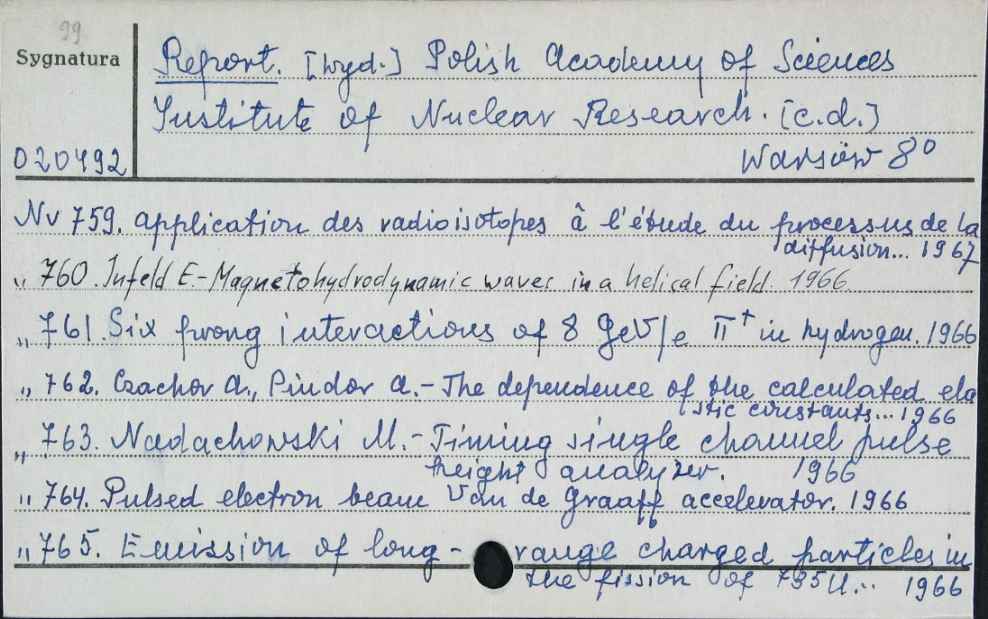 99
Sygnatura
Report. [Wyd.] Polish Academy of Sciences
Institute of Nuclear Research. [c.d.]
020492
Warsaw 8°
Nr 759. Application des radioisotopes â l'étude du processus de la
diffusion... 1967
„ 760. Infeld E.-Magnetohydrodynamic waves in a helical field. 1966.
„ 761. Six prong interactions of 8 GeV/c π+ in hydrogen. 1966
„ 762. Czachor A., Pindor A.- The dependence of the calculated ela
stic constants... 1966
„ 763. Nadachowski M.- Timing single channel pulse
height analyzer. 1966
„ 764. Pulsed electron beam Van de Graaff accelerator. 1966
„ 765. Emission of long-range charged particles in
the fission of 235U... 1966